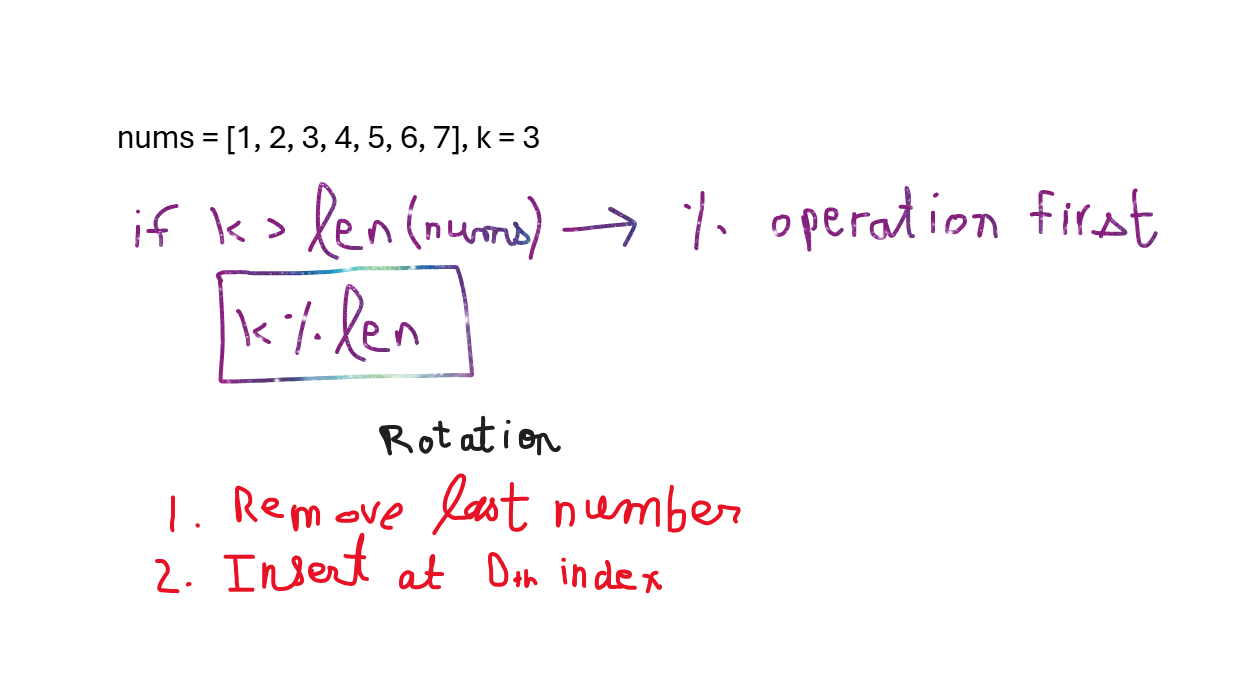 nums = [1, 2, 3, 4, 5, 6, 7], k = 3
if k > len(nums) → % operation first
k % len
Rotation
1. Remove last number
2. Insert at 0th index